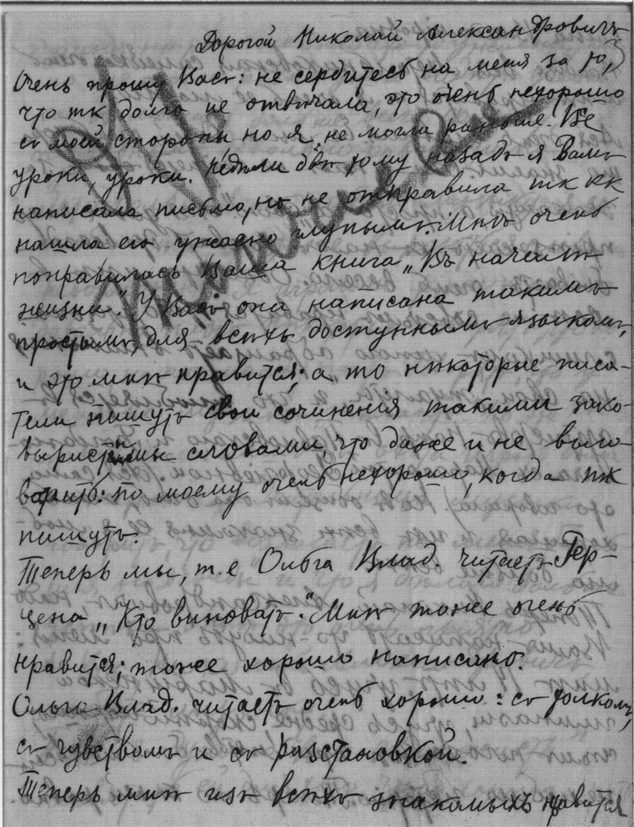 Дорогой Николай Александровичъ
Очень прошу Васъ: не сердитесь на меня за то,
что тк долго не отвѣчала, это очень нехорошо
съ моей стороны но я не могла раньше. Всё
уроки, уроки. Недѣли двѣ тому назадъ я Вамъ
написала письмо, но не отправила тк кк
нашла его ужасно глупымъ. Мнѣ очень
понравилась Ваша книга „Въ началѣ
жизни. У Васъ она написана такимъ
простымъ, для всѣхъ доступнымъ языкомъ,
и это мнѣ нравится; а то нѣкоторые писа-
тели пишутъ свои сочиненія такими зако-
выристыми словами, что даже и не выго
воришь: по моему очень нехорошо, когда тк
пишутъ.
Теперь мы, т.е Ольга Влад. читаетъ Гер-
цена „Кто виноватъ". Мнѣ тоже очень
нравится; тоже хорошо написано.
Ольга Влад. читаетъ очень хорошо: съ толкомъ,
съ чувствомъ и съ разстановкой.
Теперь мнѣ изъ всѣхъ знакомыхъ нравится